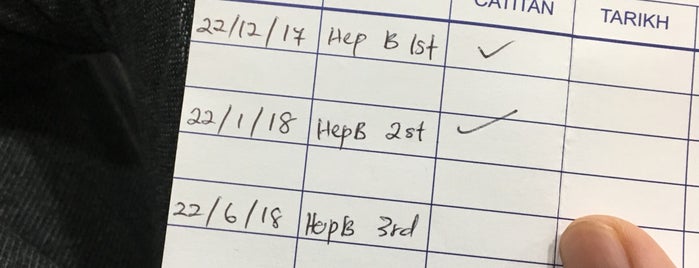 CATITAN TARIKH
22/12/17 Hep B 1st ✓
22/1/18 HepB 2st ✓
22/6/18 HepB 3rd